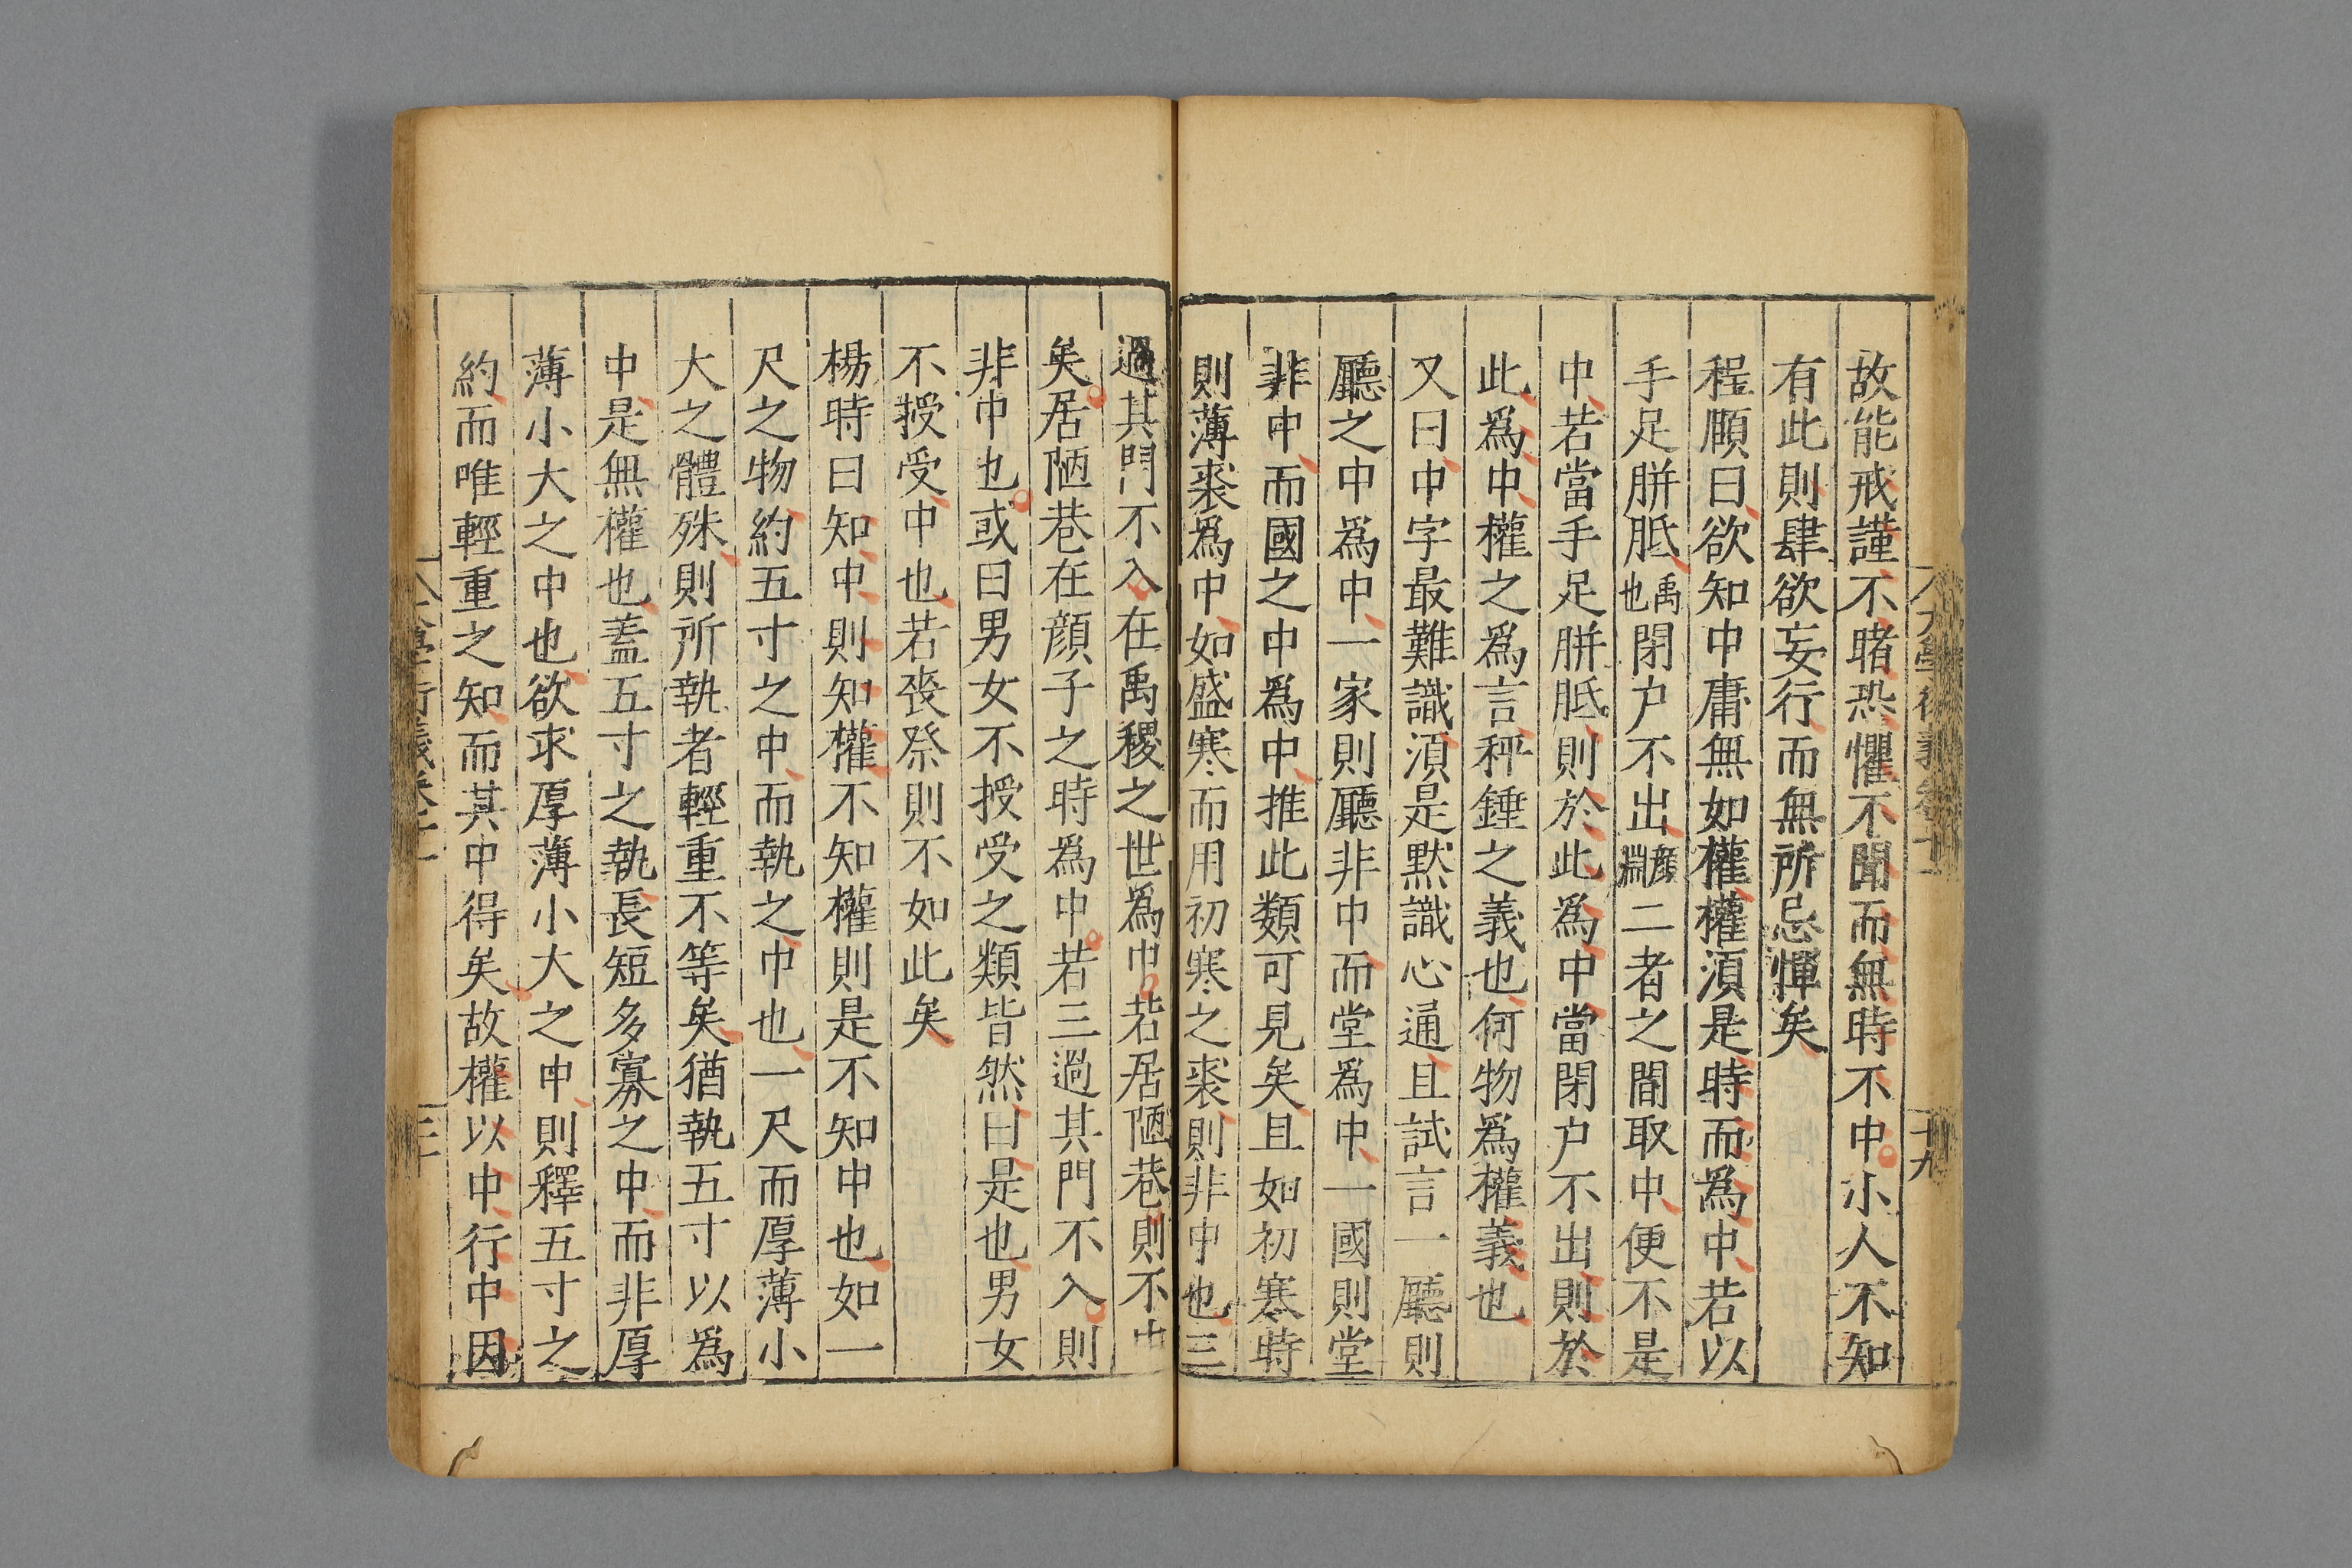 故能戒謹不睹恐懼不聞而無時不中小人不知
有此則肆欲妄行而無所忌憚矣
程頤曰欲知中庸無如權權須是時而爲中若以
手足胼胝禹也閉户不出顏淵二者之間取中便不是
中若當手足胼胝則於此爲中當閉户不出則於
此爲中權之爲言秤錘之義也何物爲權義也
又曰中字最難識須是默識心通且試言一廳則
廳之中爲中一家則廳非中而堂爲中一國則堂
非中而國之中爲中推此類可見矣且如初寒時
則薄裘爲中如盛寒而用初寒之裘則非中也三
過其門不入在禹稷之世爲中若居陋巷則不中
矣居陋巷在顔子之時爲中若三過其門不入則
非中也或曰男女不授受之類皆然曰是也男女
不授受中也若丧祭則不如此矣
楊時曰知中則知權不知權則是不知中也如一
尺之物約五寸之中而執之中也一尺而厚薄小
大之體殊則所執者輕重不等矣猶執五寸以爲
中是無權也蓋五寸之執長短多寡之中而非厚
薄小大之中也欲求厚薄小大之中則釋五寸之
約而唯輕重之知而其中得矣故權以中行中因
大學衍義卷十一
十九
大學衍義卷十一
二十